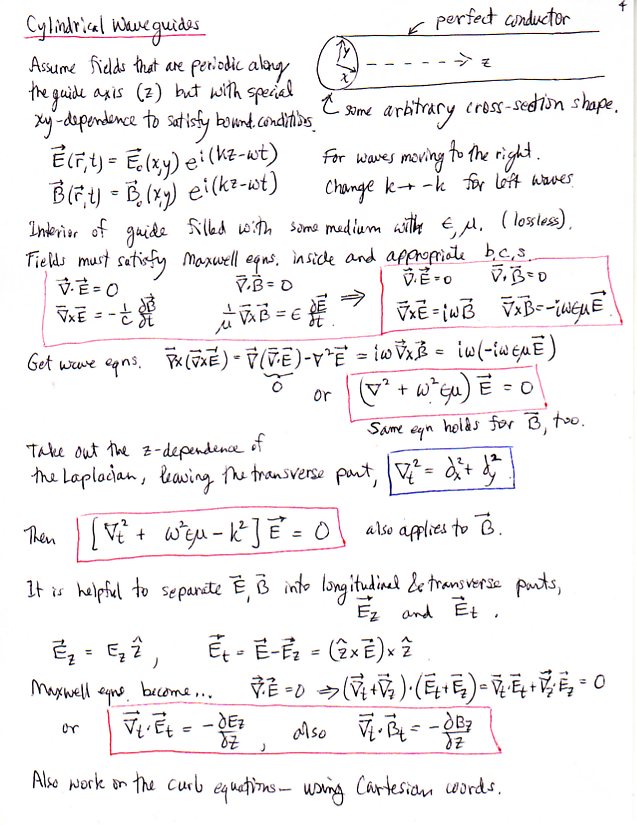 4
Cylindrical Waveguides
perfect conductor
y
x
z
Assume fields that are periodic along
the guide axis (z) but with special
xy-dependence to satisfy bound. conditions.
some arbitrary cross-section shape.
E⃗(r⃗,t) = E⃗₀(x,y) e^{i(kz-ωt)}
For waves moving to the right.
B⃗(r⃗,t) = B⃗₀(x,y) e^{i(kz-ωt)}
Change k → -k for left waves
Interior of guide filled with some medium with ϵ, μ. (lossless).
Fields must satisfy Maxwell eqns. inside and appropriate b.c.s.
∇⃗·E⃗ = 0 ∇⃗·B⃗ = 0
∇⃗×E⃗ = -1/c ∂B⃗/∂t 1/μ ∇⃗×B⃗ = ϵ ∂E⃗/∂t ⇒
∇⃗·E⃗ = 0 ∇⃗·B⃗ = 0
∇⃗×E⃗ = iωB⃗ ∇⃗×B⃗ = -iωϵμE⃗
Get wave eqns. ∇⃗×(∇⃗×E⃗) = ∇⃗(∇⃗·E⃗) - ∇²E⃗ = iω∇⃗×B⃗ = iω(-iωϵμE⃗)
0
or (∇² + ω²ϵμ) E⃗ = 0
Same eqn holds for B⃗, too.
Take out the z-dependence of
the Laplacian, leaving the transverse part, ∇ₜ² = ∂ₓ² + ∂ᵧ²
Then [∇ₜ² + ω²ϵμ - k²] E⃗ = 0 also applies to B⃗.
It is helpful to separate E⃗, B⃗ into longitudinal & transverse parts,
E⃗_z and E⃗ₜ.
E⃗_z = E_z ẑ, E⃗ₜ = E⃗ - E⃗_z = (ẑ×E⃗)×ẑ
Maxwell eqns. become... ∇⃗·E⃗ = 0 ⇒ (∇⃗ₜ+∇⃗_z)·(E⃗ₜ+E⃗_z) = ∇⃗ₜ·E⃗ₜ + ∇⃗_z·E⃗_z = 0
or ∇⃗ₜ·E⃗ₜ = -∂E_z/∂z, also ∇⃗ₜ·B⃗ₜ = -∂B_z/∂z
Also work on the curl equations — using Cartesian coords.